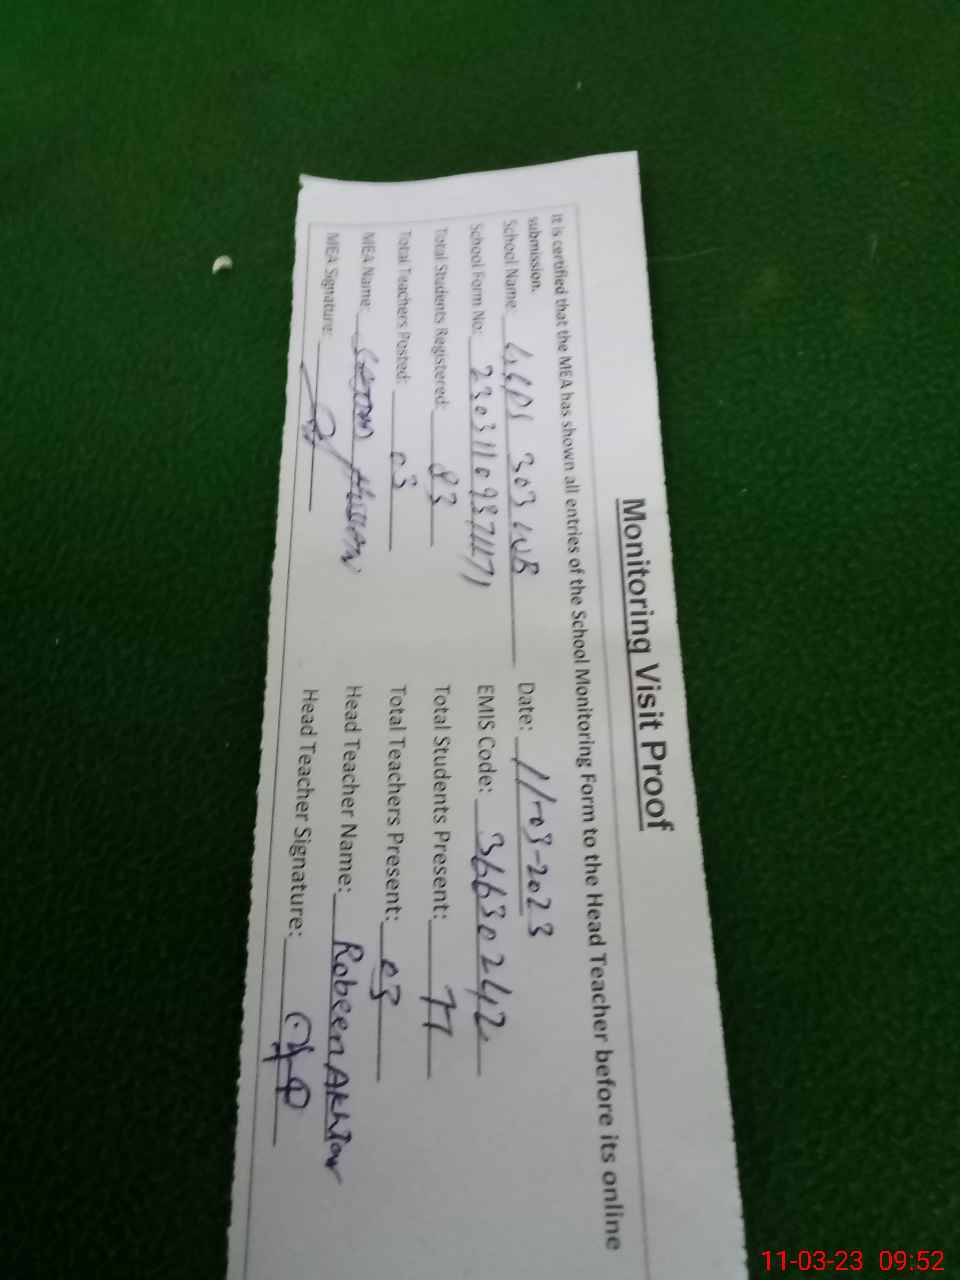 Monitoring Visit Proof
It is certified that the MEA has shown all entries of the School Monitoring Form to the Head Teacher before its online
submission.
School Name: GGPS 303 WB Date: 11-03-2023
School Form No: EMIS Code: 36630242
Total Students Registered: 83 Total Students Present: 77
Total Teachers Posted: 03 Total Teachers Present: 03
MEA Name: Hussain Head Teacher Name: Robeen Akhtar
MEA Signature: Head Teacher Signature:
11-03-23 09:52